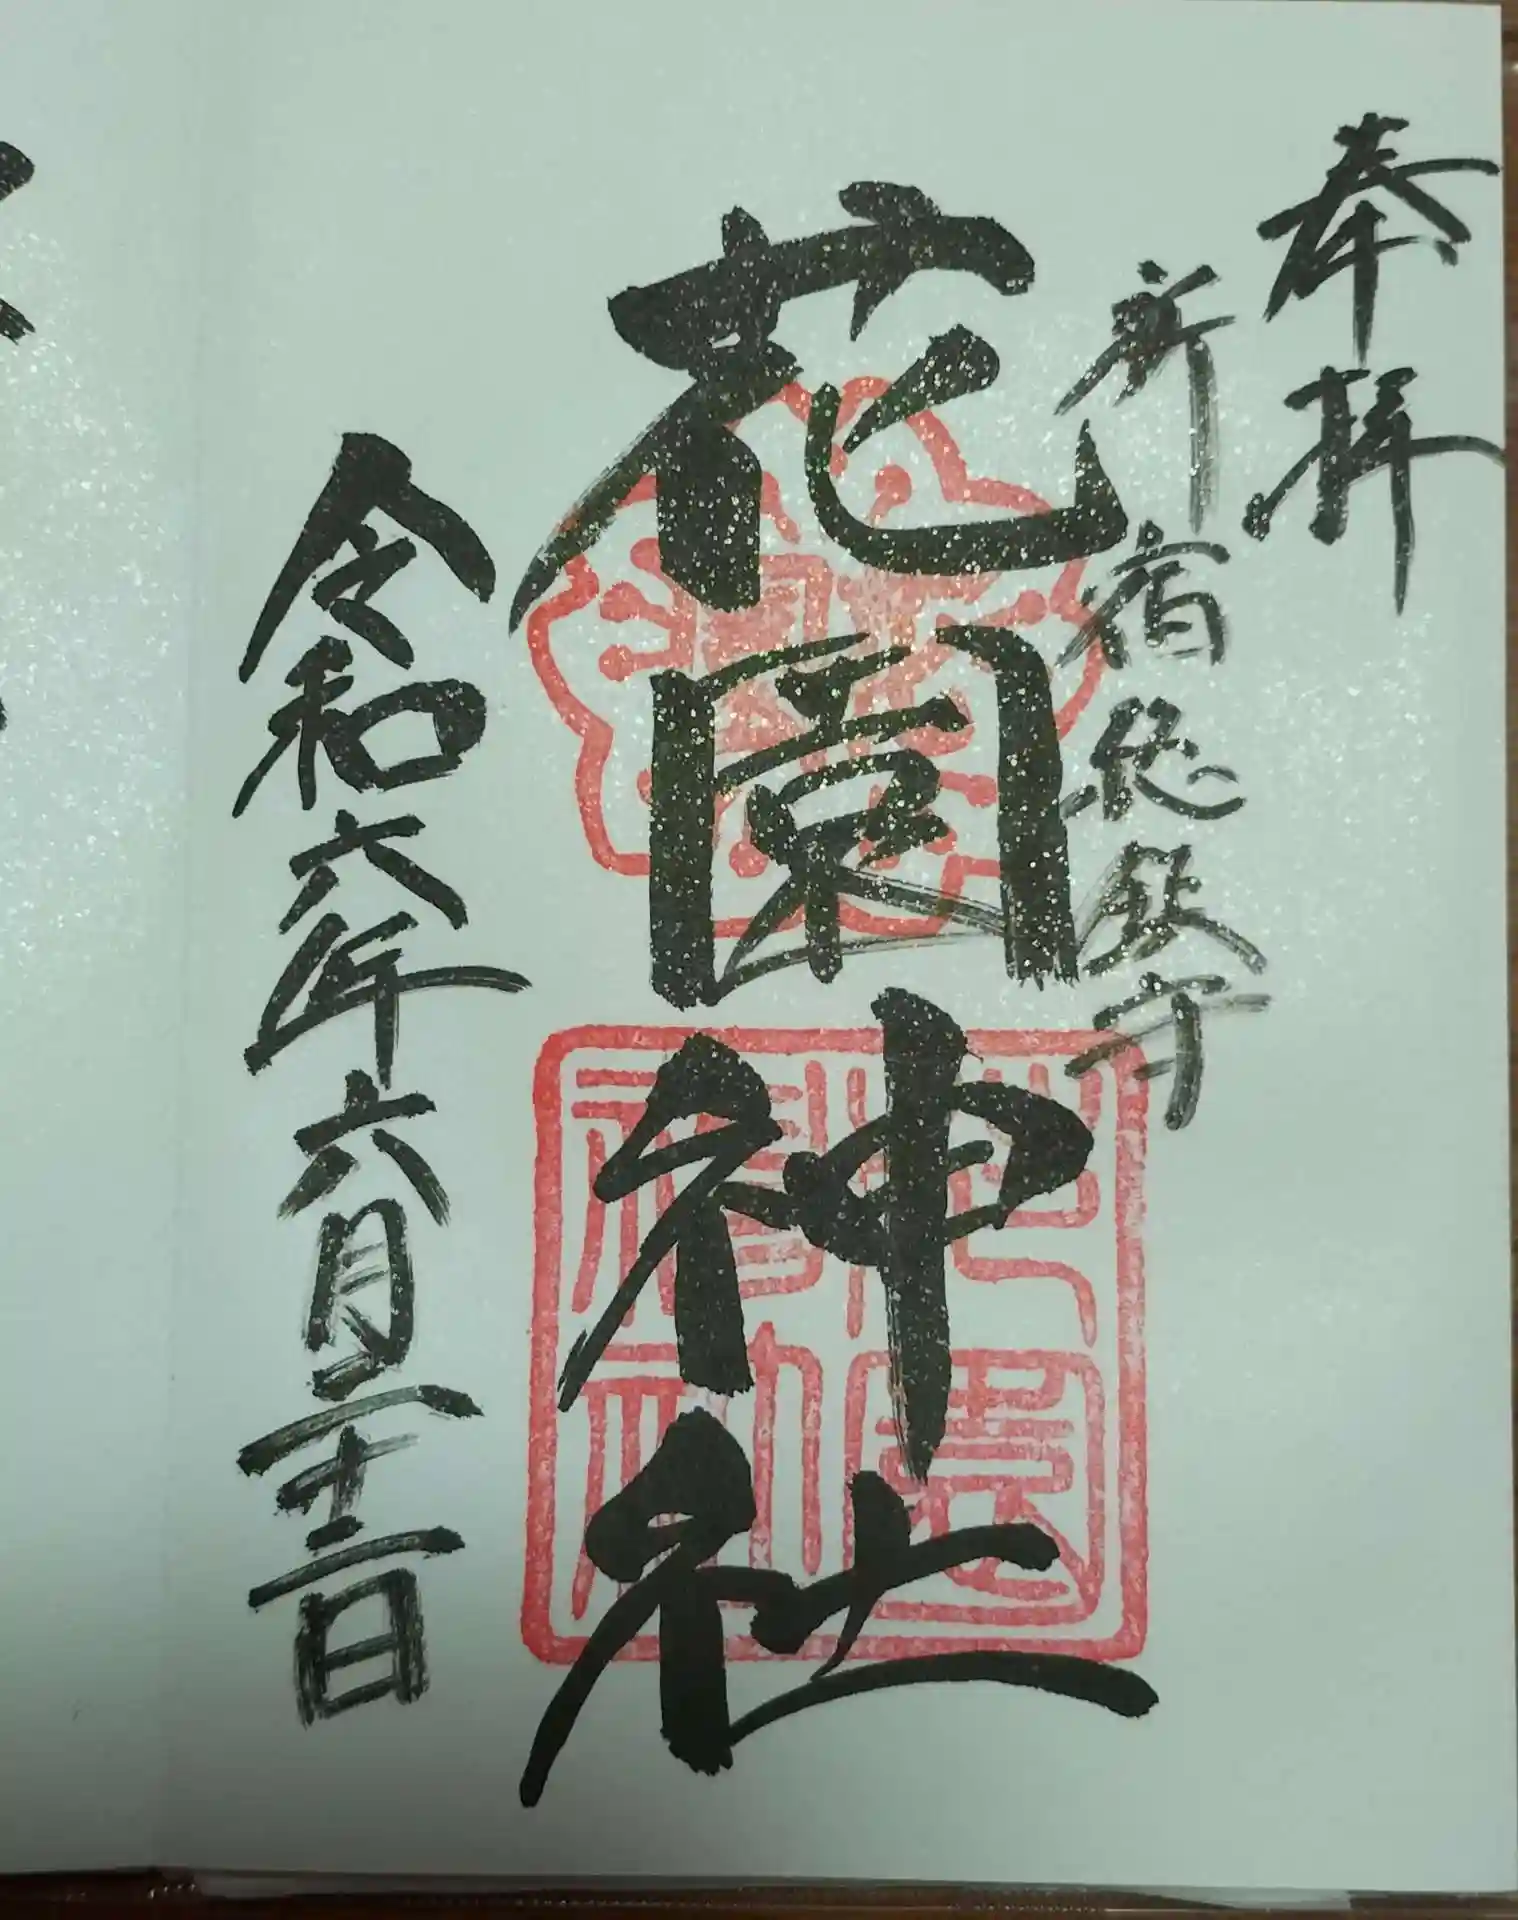 奉拝
新宿総鎮守
花園神社
令和六年六月二十二日
花園
神社